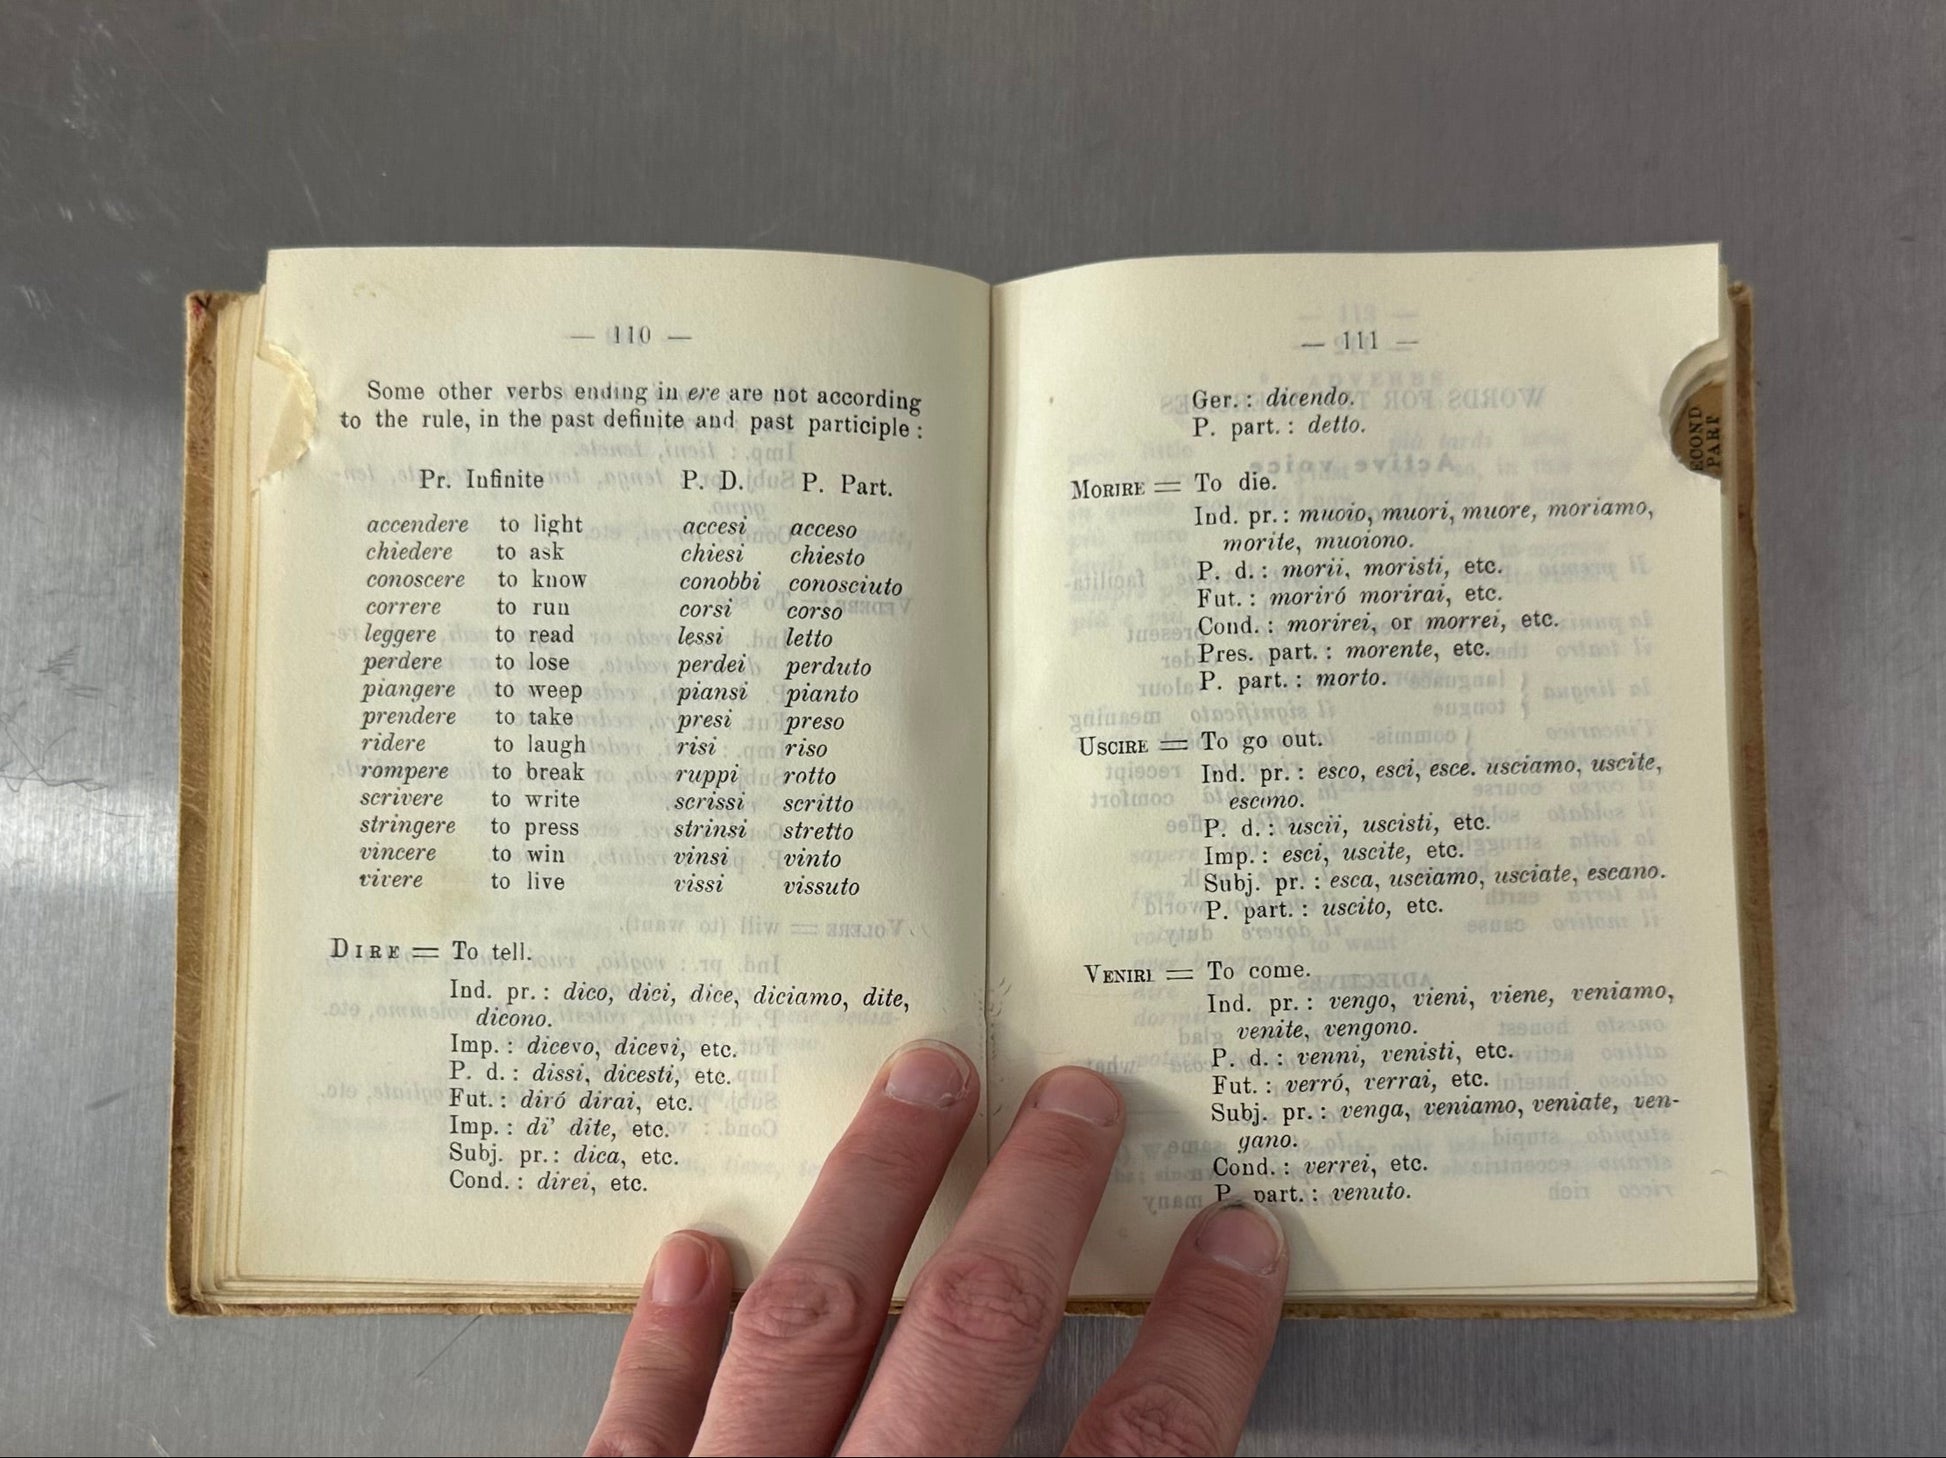 — 110 —
Some other verbs ending in ere are not according
to the rule, in the past definite and past participle :
Pr. Infinite P. D. P. Part.
accendere to light accesi acceso
chiedere to ask chiesi chiesto
conoscere to know conobbi conosciuto
correre to run corsi corso
leggere to read lessi letto
perdere to lose perdei perduto
piangere to weep piansi pianto
prendere to take presi preso
ridere to laugh risi riso
rompere to break ruppi rotto
scrivere to write scrissi scritto
stringere to press strinsi stretto
vincere to win vinsi vinto
vivere to live vissi vissuto
DIRE = To tell.
Ind. pr. : dico, dici, dice, diciamo, dite,
dicono.
Imp. : dicevo, dicevi, etc.
P. d. : dissi, dicesti, etc.
Fut. : diró dirai, etc.
Imp. : di' dite, etc.
Subj. pr. : dica, etc.
Cond. : direi, etc.
— 111 —
Ger. : dicendo.
P. part. : detto.
MORIRE = To die.
Ind. pr. : muoio, muori, muore, moriamo,
morite, muoiono.
P. d. : morii, moristi, etc.
Fut. : moriró morirai, etc.
Cond. : morirei, or morrei, etc.
Pres. part. : morente, etc.
P. part. : morto.
USCIRE = To go out.
Ind. pr. : esco, esci, esce. usciamo, uscite,
escono.
P. d. : uscii, uscisti, etc.
Imp. : esci, uscite, etc.
Subj. pr. : esca, usciamo, usciate, escano.
P. part. : uscito, etc.
VENIRI = To come.
Ind. pr. : vengo, vieni, viene, veniamo,
venite, vengono.
P. d. : venni, venisti, etc.
Fut. : verró, verrai, etc.
Subj. pr. : venga, veniamo, veniate, ven-
gano.
Cond. : verrei, etc.
P. part. : venuto.
ECOND
PART